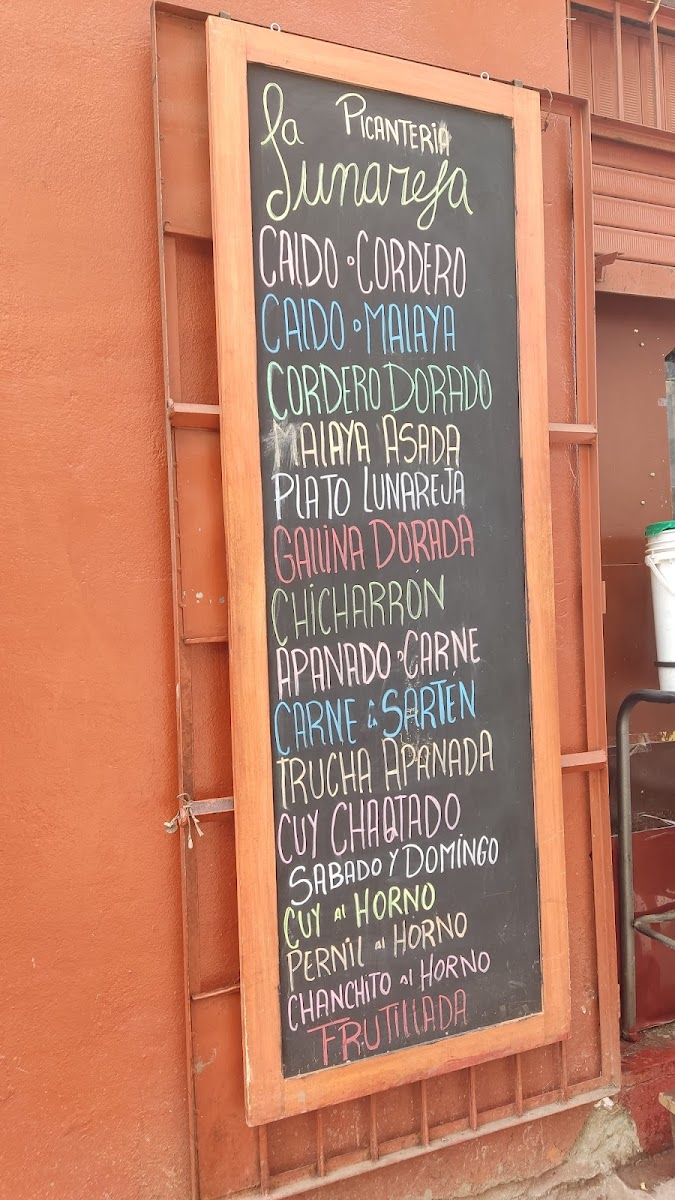 Picanteria
La Lunareja
CALDO D CORDERO
CALDO D MALAYA
CORDERO DORADO
MALAYA ASADA
PLATO LUNAREJA
GALLINA DORADA
CHICHARRÓN
APANADO D CARNE
CARNE a la SARTÉN
TRUCHA APANADA
CUY CHAQTADO
SABADO Y DOMINGO
CUY al HORNO
PERNIL al HORNO
CHANCHITO al HORNO
FRUTILLADA